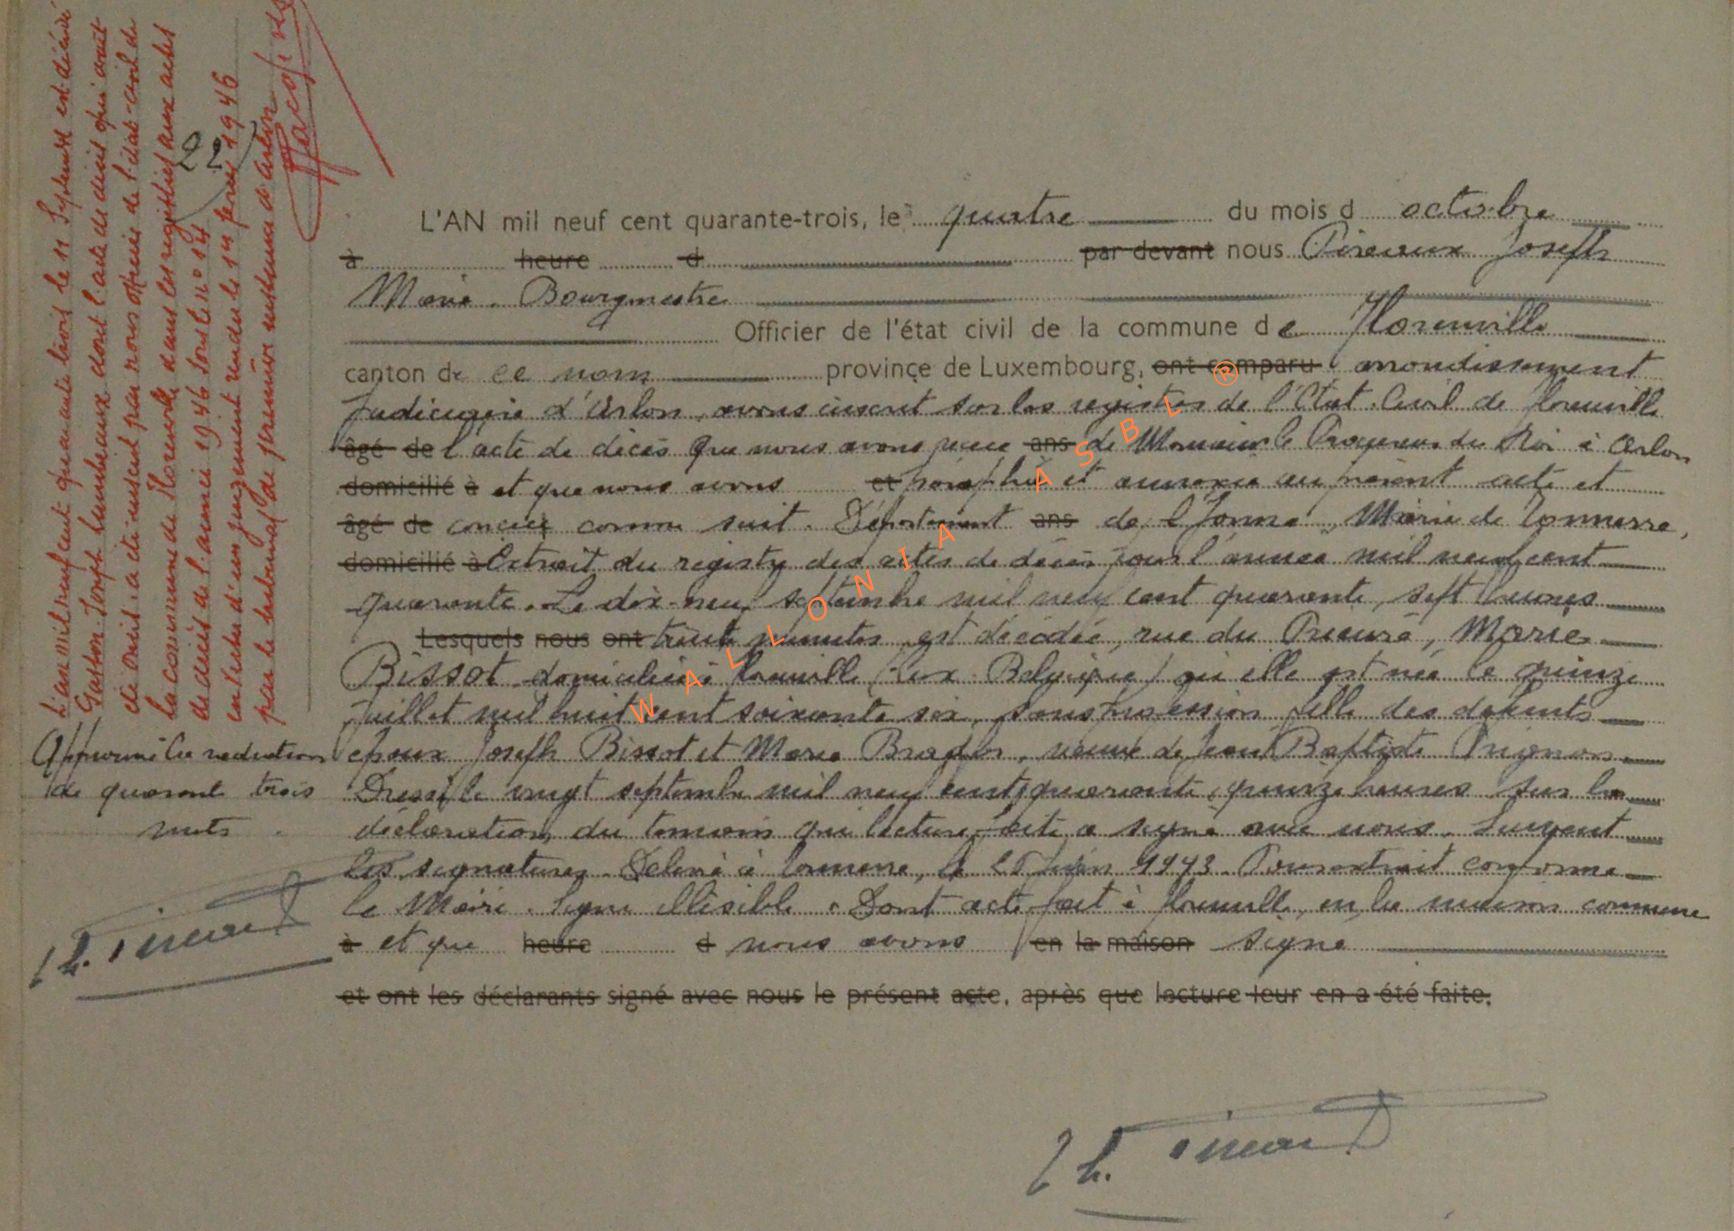 L'an mil neuf cent quarante trois le 11 Septembre est décédé
Gaston Joseph dont l'acte de décès qui avait
été omis a été inscrit par nous officier de l'état-civil de
la commune de Florenville dans les registres aux actes
de décès de l'année 1946 sous le n° 14
en vertu d'un jugement rendu le 1er 1946
par le tribunal de première instance d'Arlon
22
L'AN mil neuf cent quarante-trois, le quatre du mois d octobre
à heure d par devant nous Pireaux Joseph
Marie. Bourgmestre
Officier de l'état civil de la commune de Florenville
canton de ce nom province de Luxembourg, ont comparu arrondissement
judiciaire d'Arlon, avons inscrit sur les registres de l'Etat-Civil de Florenville
âgé de l'acte de décès que nous avons reçu ans de Monsieur le Procureur du Roi à Arlon
domicilié à et que nous avons et paraphé et annexé au présent acte et
âgé de conçu comme suit. Département ans de l'Yonne, Mairie de Tonnerre,
domicilié à Extrait du registre des actes de décès pour l'année mil neuf cent
quarante. Le dix-neuf septembre mil neuf cent quarante, sept heures
Lesquels nous ont trente minutes, est décédée, rue du Prieuré, Marie
Bissot domiciliée à Florenville (Lux. Belgique) où elle est née le quinze
juillet mil huit cent soixante six, sans profession fille des défunts
époux Joseph Bissot et Marie veuve de Jean Baptiste Prignon.
Dressé le vingt septembre mil neuf cent quarante, quinze heures sur la
déclaration du témoin qui lecture faite a signé avec nous. Suivent
les signatures. Délivré à Tonnerre, le 25 juin 1943. Pour extrait conforme
le Maire. Signé illisible. Dont acte fait à Florenville, en la maison commune
à et que heure d nous avons en la maison signé
et ont les déclarants signé avec nous le présent acte, après que lecture leur en a été faite.
Approuvé la radiation
de quarante trois
mots.
WALLONIA ASBL ®